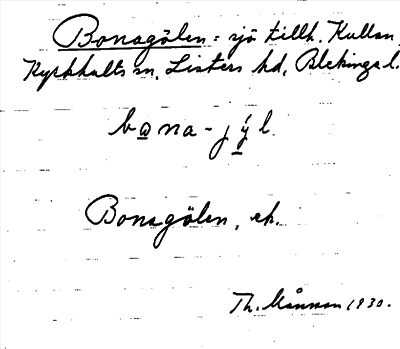 Bonagölen = sjö tillh. Kullan,
Kyrkhults sn, Listers hd, Blekinge l.
bana-jýl.
Bonagölen, ek.
Th. Månsson 1930.